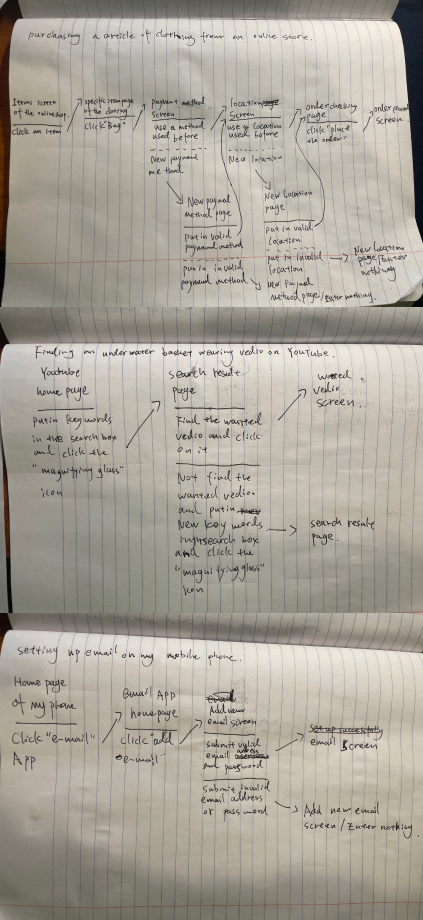 purchasing a article of clothing from an online store.
Items screen
of the online shop.
click an item
specific item page
of the clothing
click "Buy"
payment method
screen
use a method
used before
New payment
method
New payment
method page
put in valid
payment method
put in invalid
payment method
New payment
method page/Enter nothing.
location page
screen
use a location
used before
New location
New location
page
put in valid
location
put in invalid
location.
New location
page/Enter
nothing
order checking
page
click "place
the order"
order placed
screen.
Finding an underwater basket wearing vedio on YouTube.
Youtube
home page
put in key words
in the search box
and click the
"magnitying glass"
icon
search result
page
Find the wanted
vedio and click
on it
Not find the
wanted vedio
and put in
New key words
in search box
and click the
"magnitying glass"
icon
wanted
vedio
screen.
search result
page.
setting up email on my mobile phone.
Home page
of my phone
Click "e-mail"
App
email App
homepage
click "add
e-mail"
email
Add new
email screen
submit valid
email address
and password
submit invalid
email address
or password
set up successfully
email screen
Add new email
screen/Enter nothing.